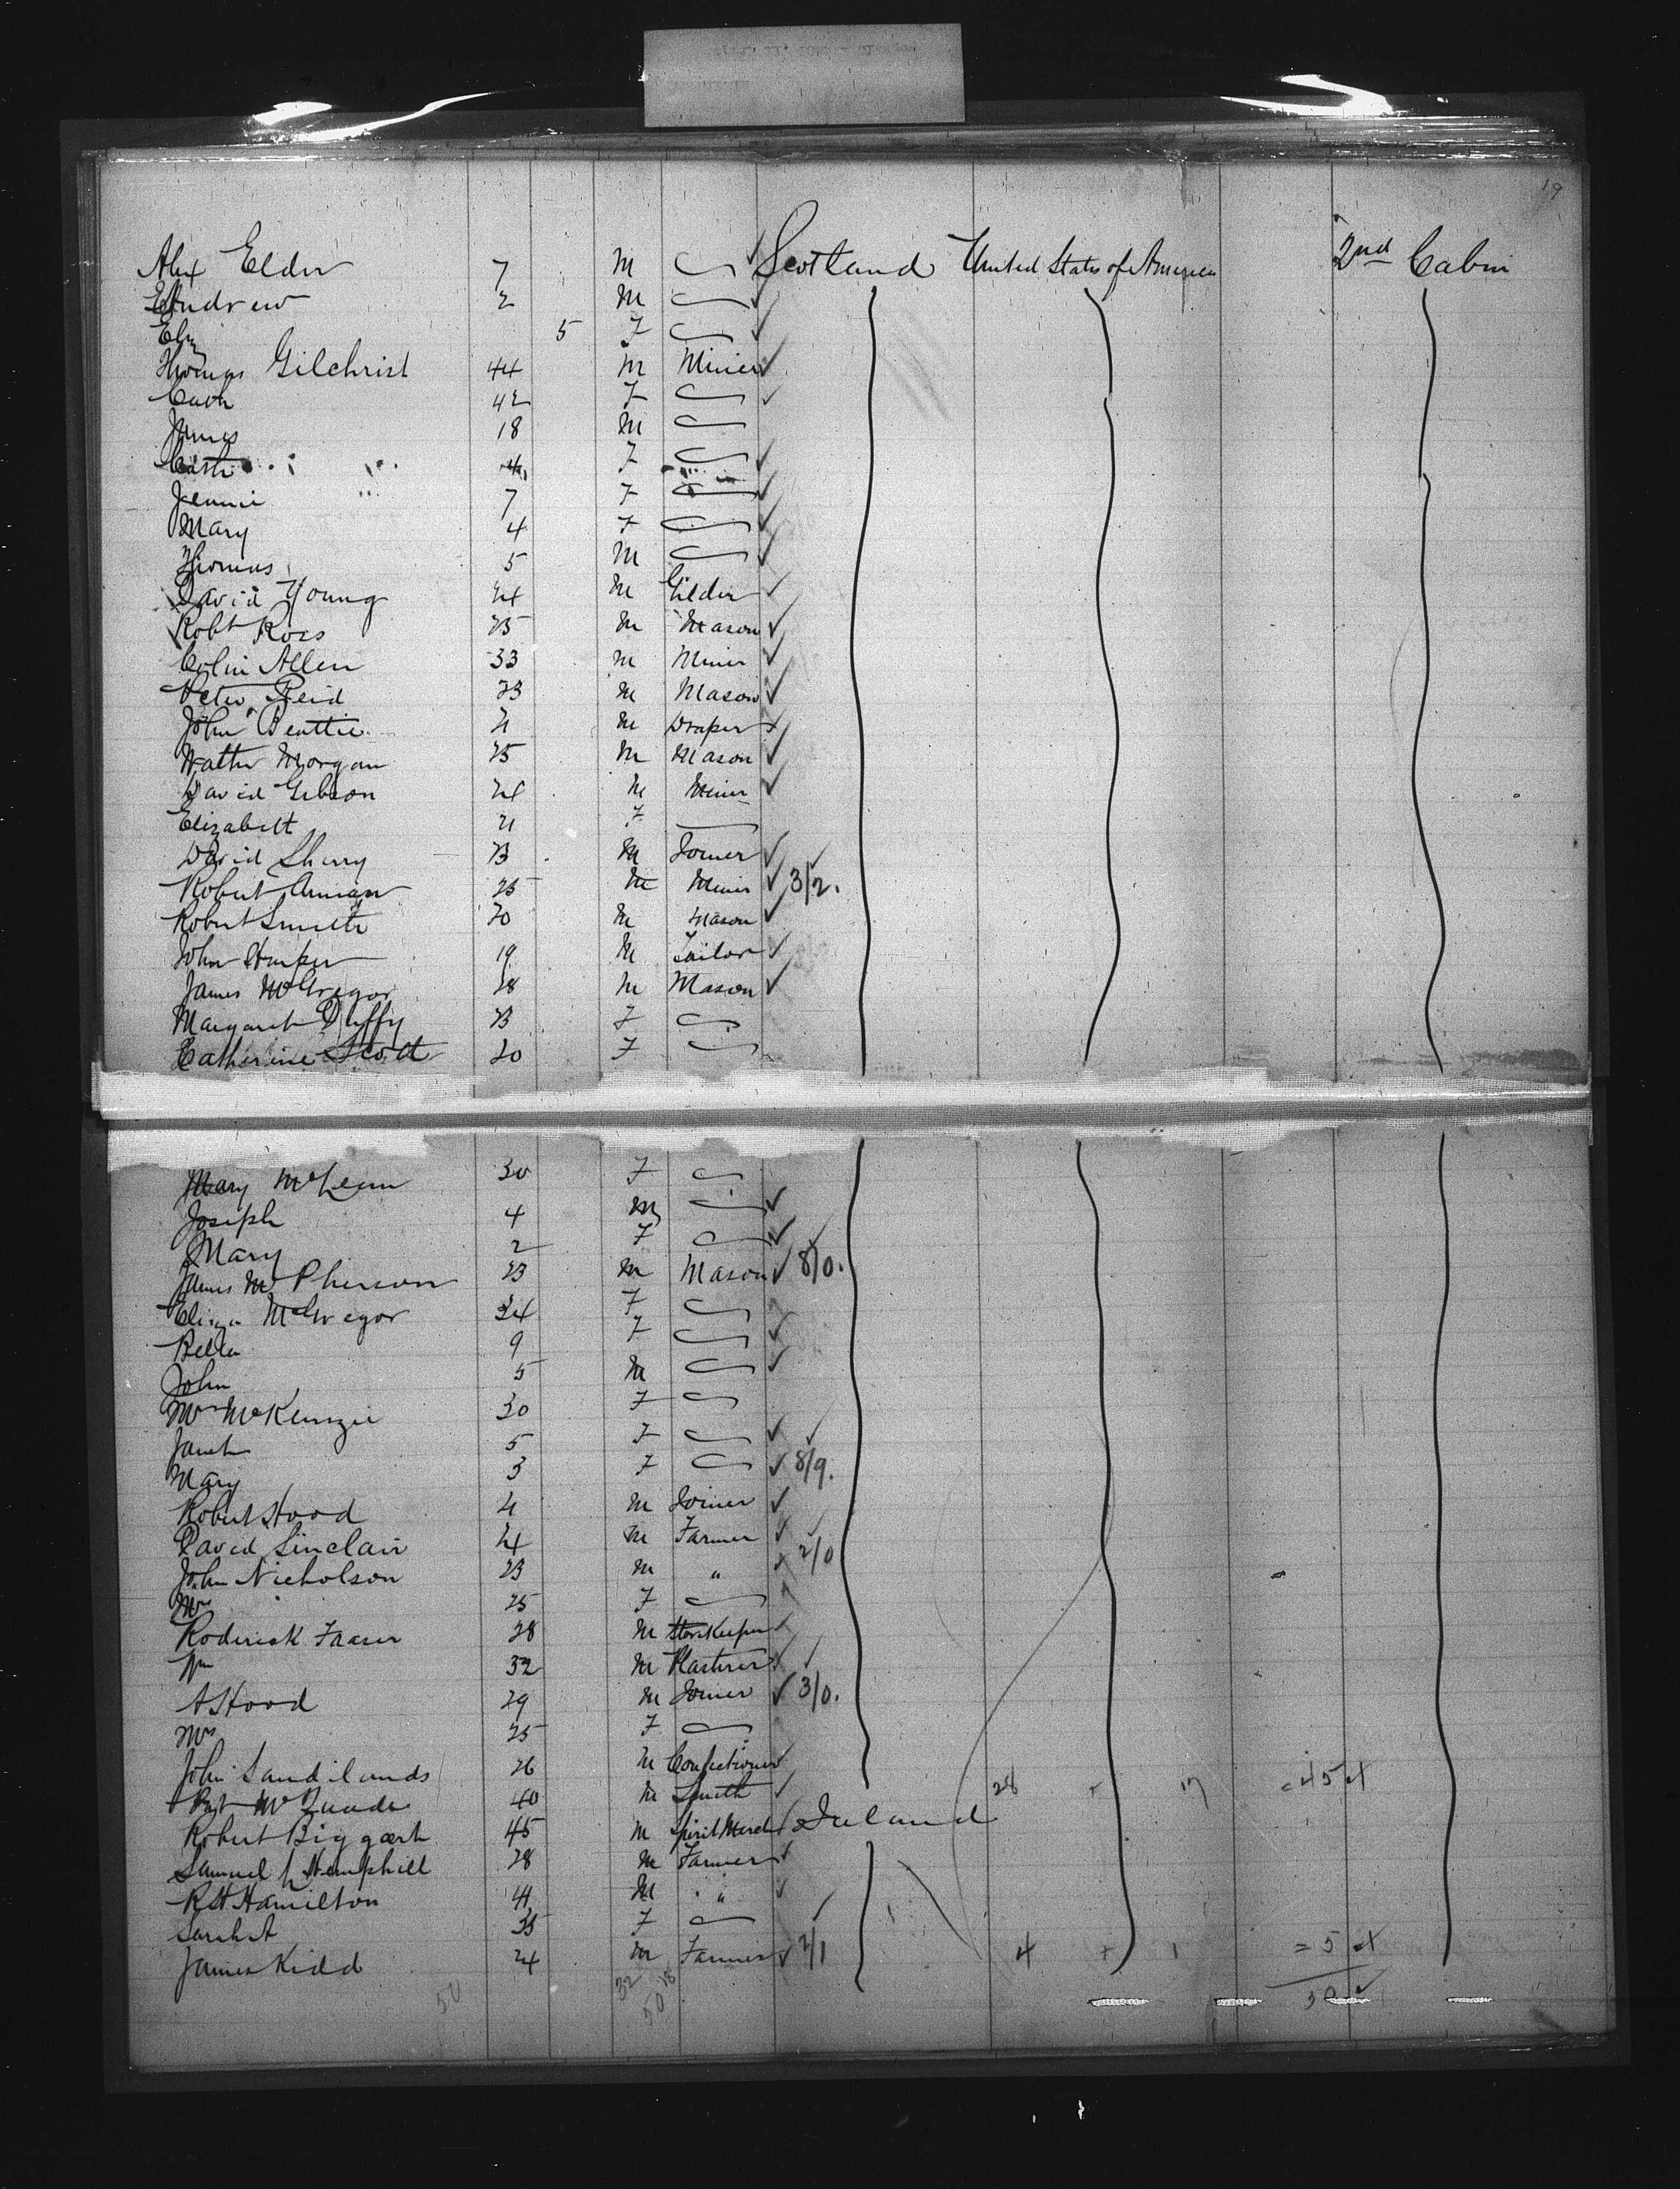 19
Alex Elder 7 M Scotland United States of America 2nd Cabin
Andrew 2 M
Eliz 5 F
Thomas Gilchrist 44 M Miner
Cath 42 F
James 18 M
Cath F
Jennie 7 F
Mary 4 F
Thomas 5 M
David Young 24 M Gilder
Robt Ross 25 M Mason
Colin Allen 33 M Miner
Peter Reid 23 M Mason
John Beattie 21 M Draper
Walter Morgan 25 M Mason
David Gibson 24 M Miner
Elizabeth 21 F
David Sherry 23 M Joiner
Robert 25 M Miner 3/2.
Robert Smith 20 M Mason
John Harper 19 M Tailor
James McGregor 28 M Mason
Margaret Duffy 23 F
Catherine Scott 20 F
Mary McLean 30 F
Joseph 4 M
Mary 2 F
James McPherson 23 M Mason 8/0.
Eliza McGregor 34 F
Bella 9 F
John 5 M
Mrs McKenzie 30 F
Janet 5 F
Mary 3 F 8/9.
Robert Hood 21 M Joiner
David Sinclair 24 M Farmer
John Nicholson 23 M " 2/0
Mrs 25 F
Roderick Fraser 28 M Storekeeper
Wm 32 M Plasterer
A Hood 29 M Joiner 3/0.
Mrs 25 F
John Sandilands 26 M Confectioner
Pat McQuade 40 M Smith 28 + 17 = 45
Robert Biggart 45 M Spirit Merch Ireland
Samuel Hemphill 28 M Farmer
R H Hamilton 41 M "
Sarah A 35 F
James Kidd 24 M Farmer 2/1 4 + 1 = 5
50 32 18 50 50